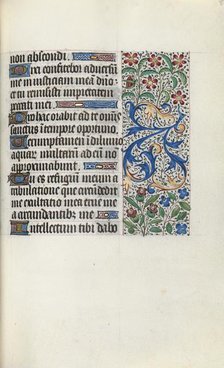 non abscondi.
Dixi confitebor adversum
me iniusticiam meam dño:
et tu remisisti impietatem
peccati mei.
Pro hac orabit ad te omnis
sanctus in tempore oportuno.
Verumptamen in diluvio
aquar multarum ad eũ nõ
approximabunt.
Tu es refugium meum a
tribulatione que circumdedit
me exultatio mea erue me
a circundantibus me.
Intellectum tibi dabo